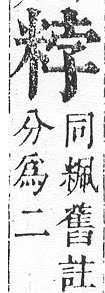 粰
同䊧舊註
分爲二